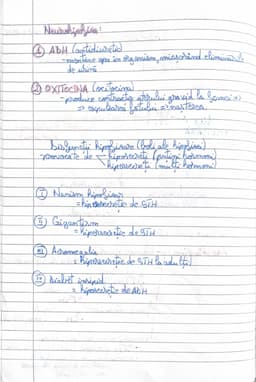 Neurohipofiza:
① ADH (antidiuretic)
-menține apa în organism, micșorând eliminările
de urină
② OXITOCINA (ocitocina)
-produce contracția uterului gravid la femeie
=> expulzarea fătului și nașterea.
Disfuncții hipofizare (boli ale hipofizei)
-provocate de - hiposecreții (puțini hormoni)
hipersecreții (mulți hormoni)
I Nanism hipofizar
= hiposecreție de STH
II Gigantism
= hipersecreție de STH
III Acromegalie
= hipersecreție de STH la adulți
IV Diabet insipid
= hiposecreție de ADH